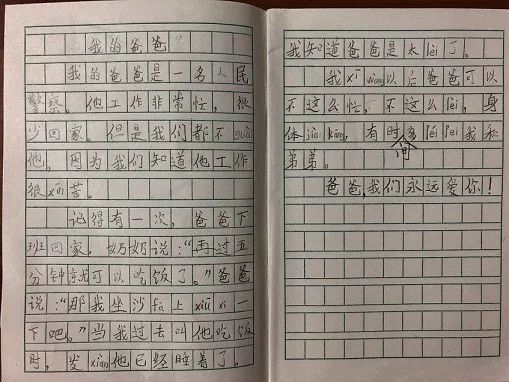 我的爸爸
我的爸爸是一名人民
警察。他工作非常忙，很
少回家。但是我们都不guài
他，因为我们知道他工作
很xīn苦。
记得有一次，爸爸下
班回家，奶奶说：“再过五
分钟就可以吃饭了。”爸爸
说：“那我坐沙fā上xiū xi一
下吧。”当我过去叫他吃饭
时，发xiàn他已经睡着了。
我知道爸爸是太lèi了。
我xī wàng以后爸爸可以
不这么忙，不这么lèi，身
体jiàn kāng，有时间多péi pei我和
弟弟。
爸爸，我们永远爱你！